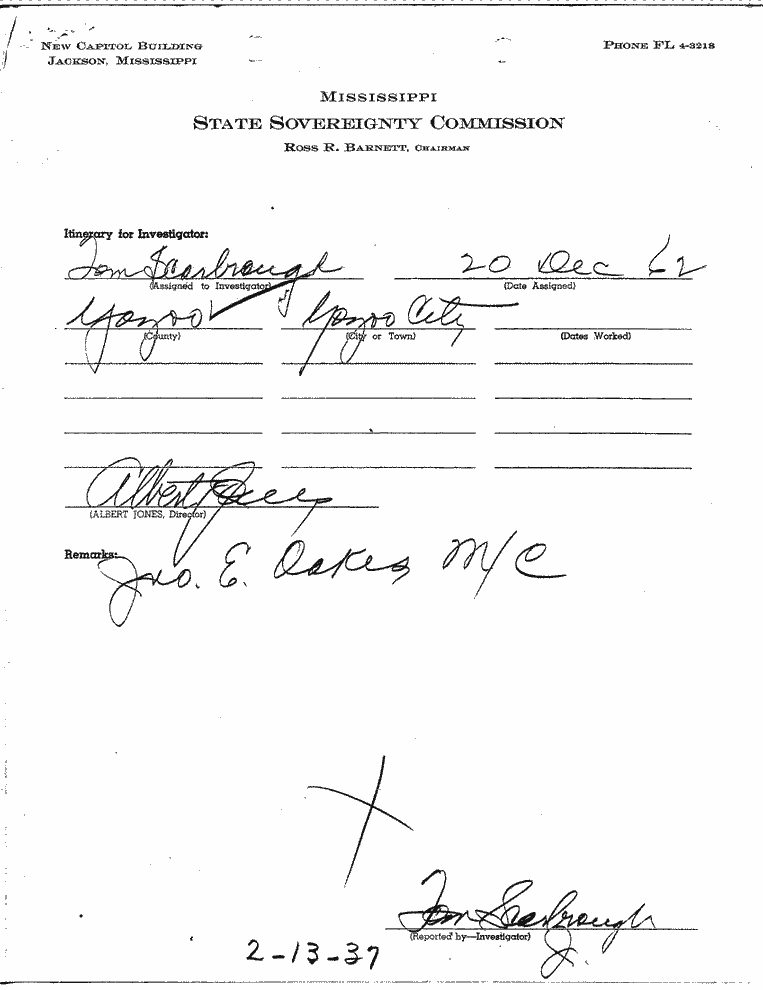 NEW CAPITOL BUILDING
JACKSON, MISSISSIPPI
PHONE FL 4-3218
MISSISSIPPI
STATE SOVEREIGNTY COMMISSION
ROSS R. BARNETT, CHAIRMAN
Itinerary for Investigator:
Tom Scarbrough 20 Dec 62
(Assigned to Investigator) (Date Assigned)
Yazoo Yazoo City
(County) (City or Town) (Dates Worked)
Albert Jones
(ALBERT JONES, Director)
Remarks:
Jno. E. Oakes M/C
Tom Scarbrough
(Reported by—Investigator)
2-13-37